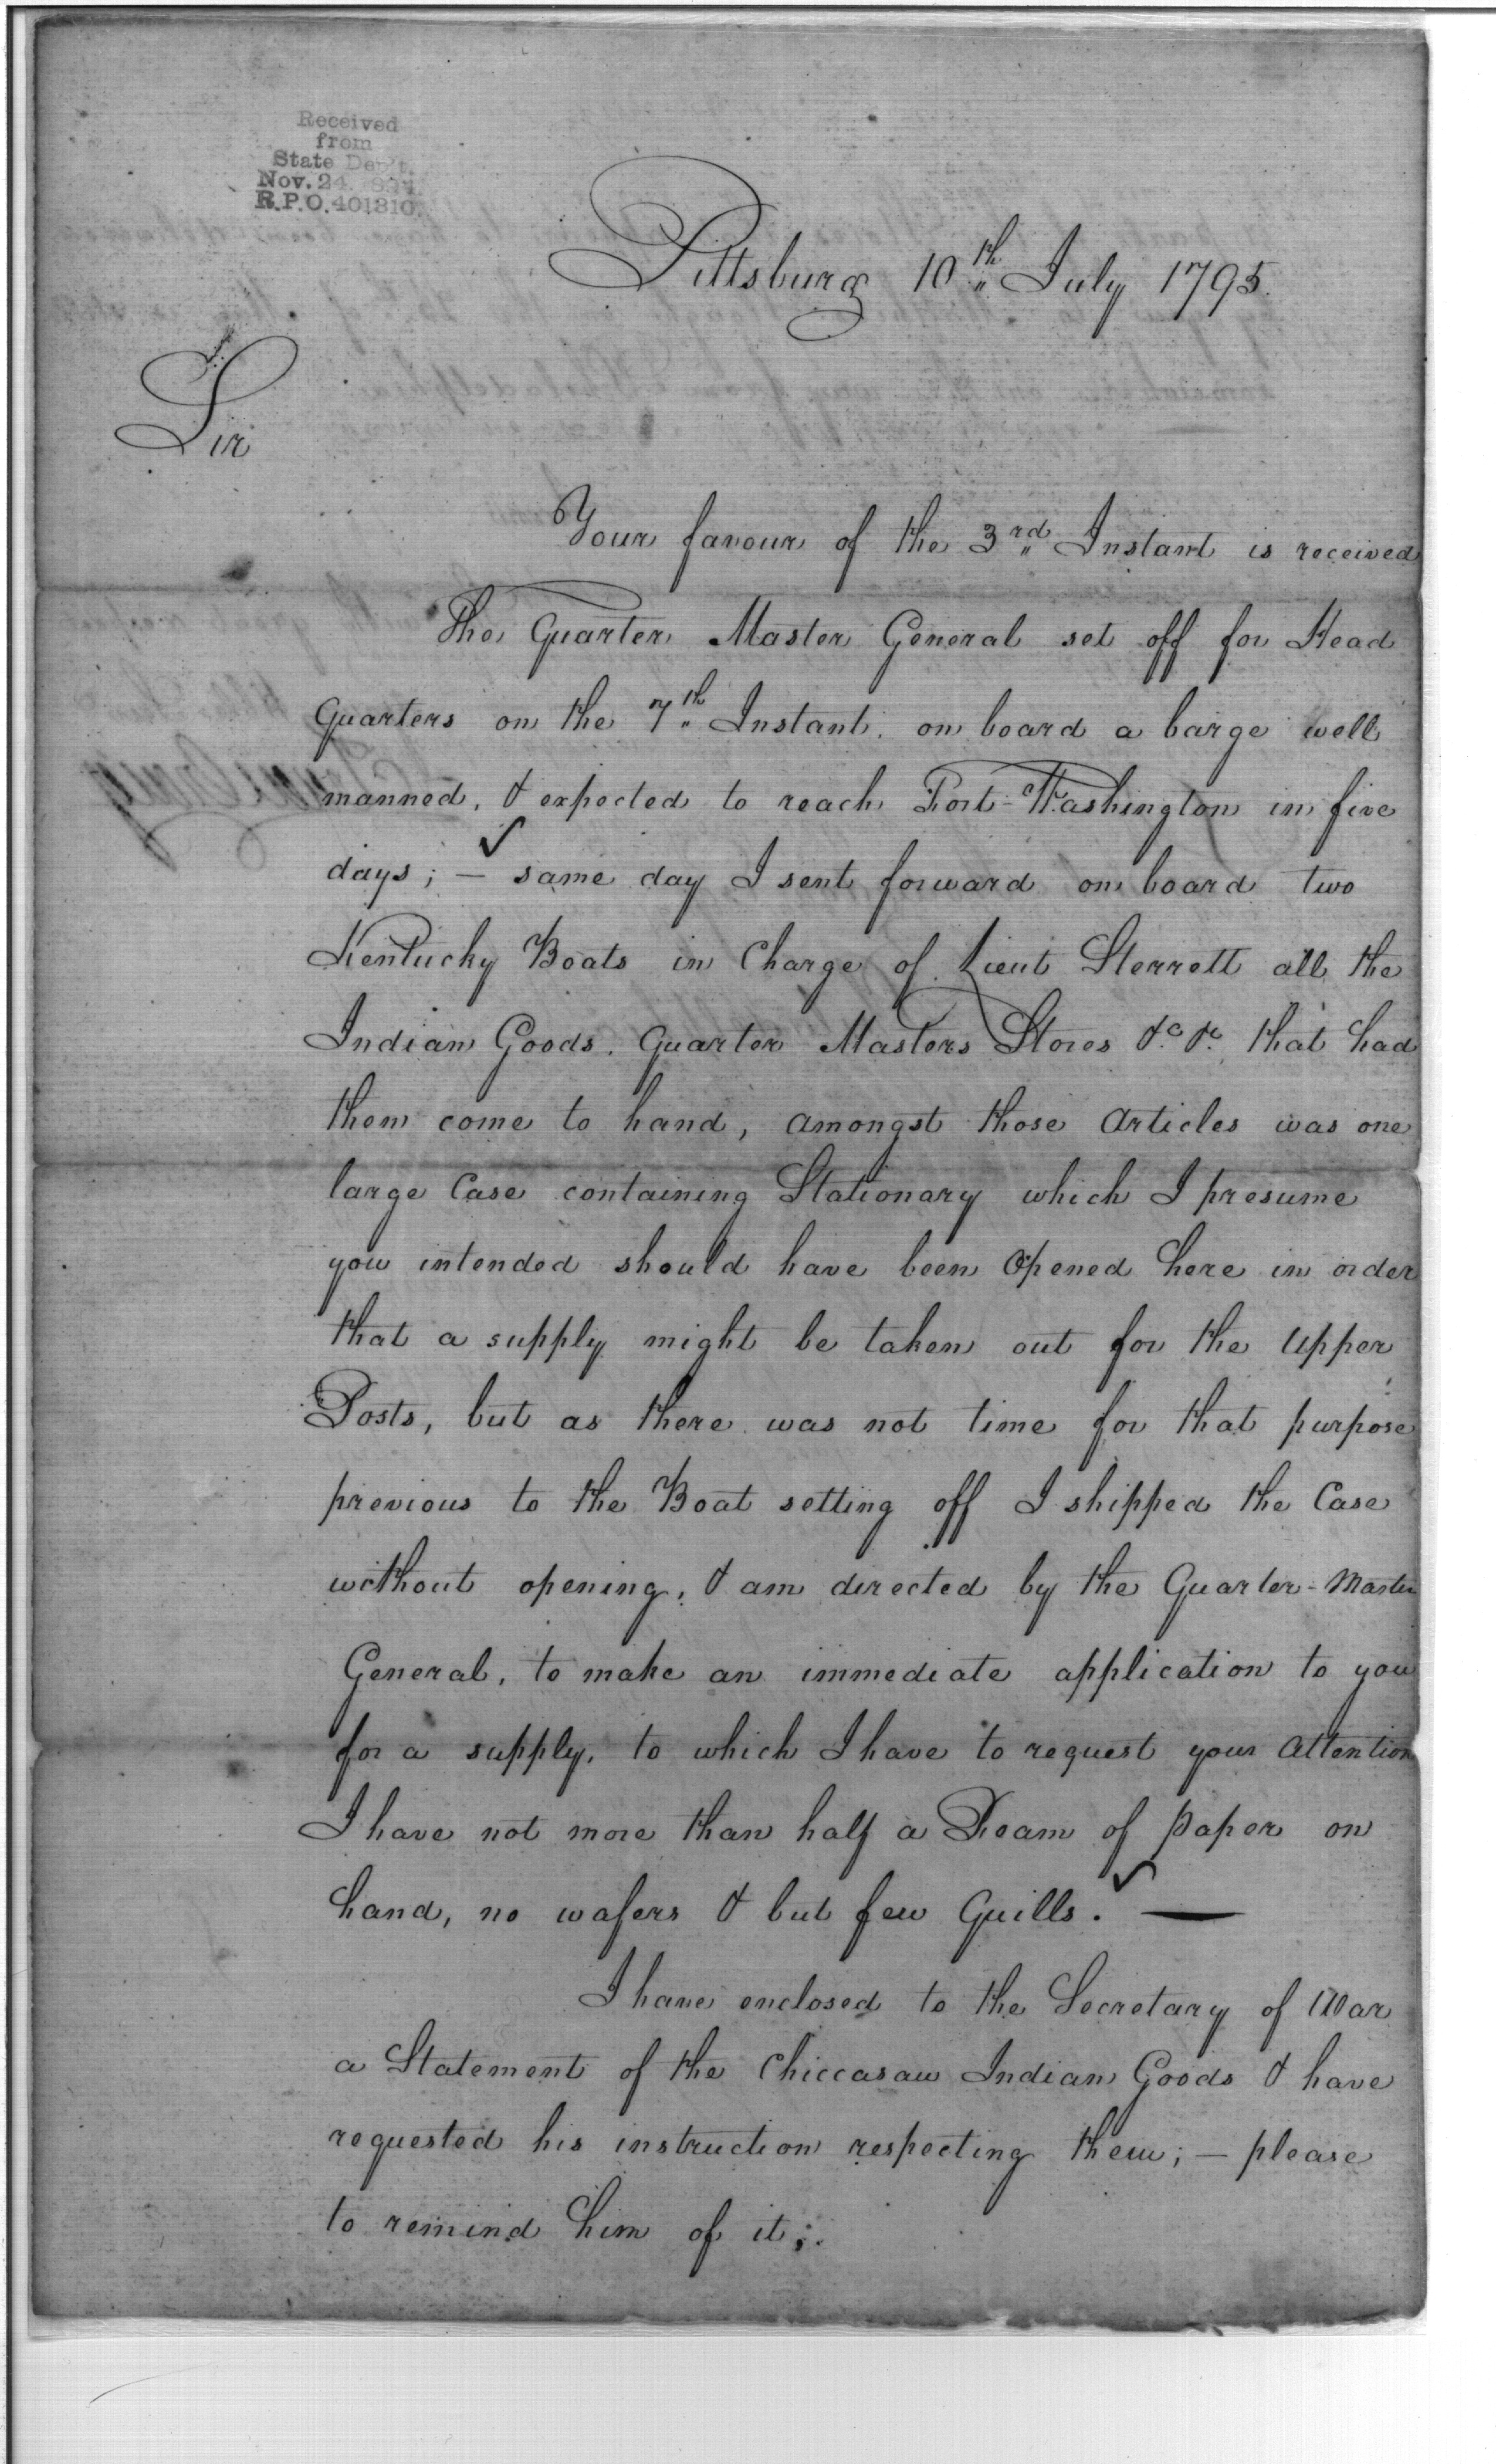 Received
from
State Dep't.
Nov. 24.
R.P.O. 401310.
Pittsburg 10th July 1795.
Sir
Your favour of the 3rd Instant is received
The Quarter Master General set off for Head
Quarters on the 7th Instant. on board a barge well
manned, & expected to reach Fort-Washington in five
days; — same day I sent forward on board two
Kentucky Boats in Charge of Lieut Sterrett all the
Indian Goods. Quarter Masters Stores &c &c that had
them come to hand, amongst those Articles was one
large Case containing Stationary which I presume
you intended should have been Opened here in order
that a supply might be taken out for the upper
Posts, but as there was not time for that purpose
previous to the Boat setting off I shipped the Case
without opening, & am directed by the Quarter-Master
General, to make an immediate application to you
for a supply, to which I have to request your Attention
I have not more than half a Ream of paper on
hand, no wafers & but few Quills. —
I have enclosed to the Secretary of War
a Statement of the Chiccasaw Indian Goods & have
requested his instruction respecting them; — please
to remind him of it;.